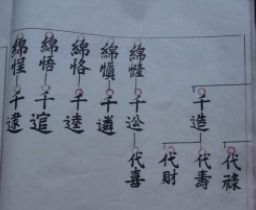 代祿
千造
代壽
代財
綿
千
代喜
綿愼
千遴
綿恪
千逵
綿悟
千逭
綿惺
千逮